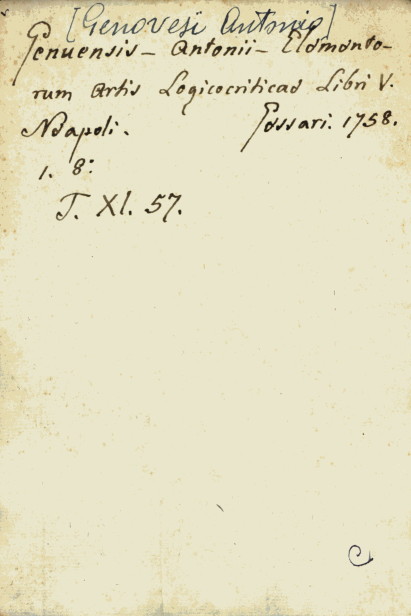 [Genovesi Antonio]
Genuensis - Antonii - Elemento-
rum Artis Logicocriticae Libri V.
Neapoli. Gessari. 1758.
1. 8:
T. XI. 57.
C